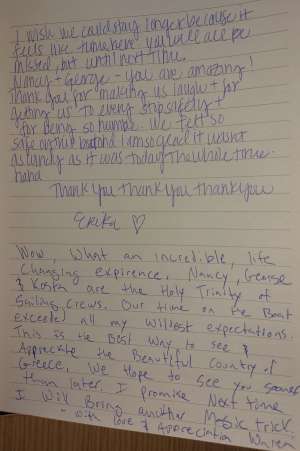 I wish we could stay longer because it
feels like time here you will all be
missed, but until next time.
Nancy + George - you are amazing!
Thank you for making us laugh + for
getting us to every stop safely +
for being so humble. We felt so
safe on this boat and I am so glad it wasn't
as windy as it was today the whole time.
haha
Thank you thank you thank you
Erika ♡
Wow, What an incredible, life
Changing expirence. Nancy, George
& Kosta are the Holy Trinity of
Sailing Crews. Our time on the Boat
exceeded all my wildest expectations.
This is the Best way to see &
Appreciate the Beautiful Country of
Greece. We Hope to see you sooner
than later. I promise Next time
I will Bring another Magic trick.
- with Love & Appreciation Warren